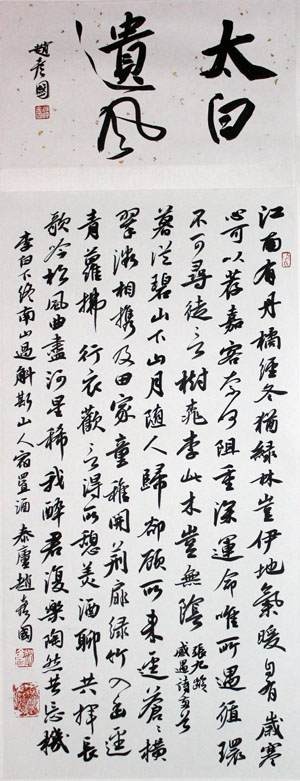 太白
遺風
趙彥國
江南有丹橘經冬猶緑林豈伊地氣暖自有歲寒
心可以荐嘉客奈何阻重深運命唯所遇循環
不可尋徒言樹桃李此木豈無陰
張九齡
感遇詩
暮從碧山下山月隨人歸卻顧所来徑蒼蒼橫
翠微相携及田家童稚開荆扉緑竹入幽徑
青蘿拂行衣歡言得所憩美酒聊共揮長
歌吟松風曲盡河星稀我醉君復樂陶然共忘機
李白下終南山過斛斯山人宿置酒 泰廬趙彥國